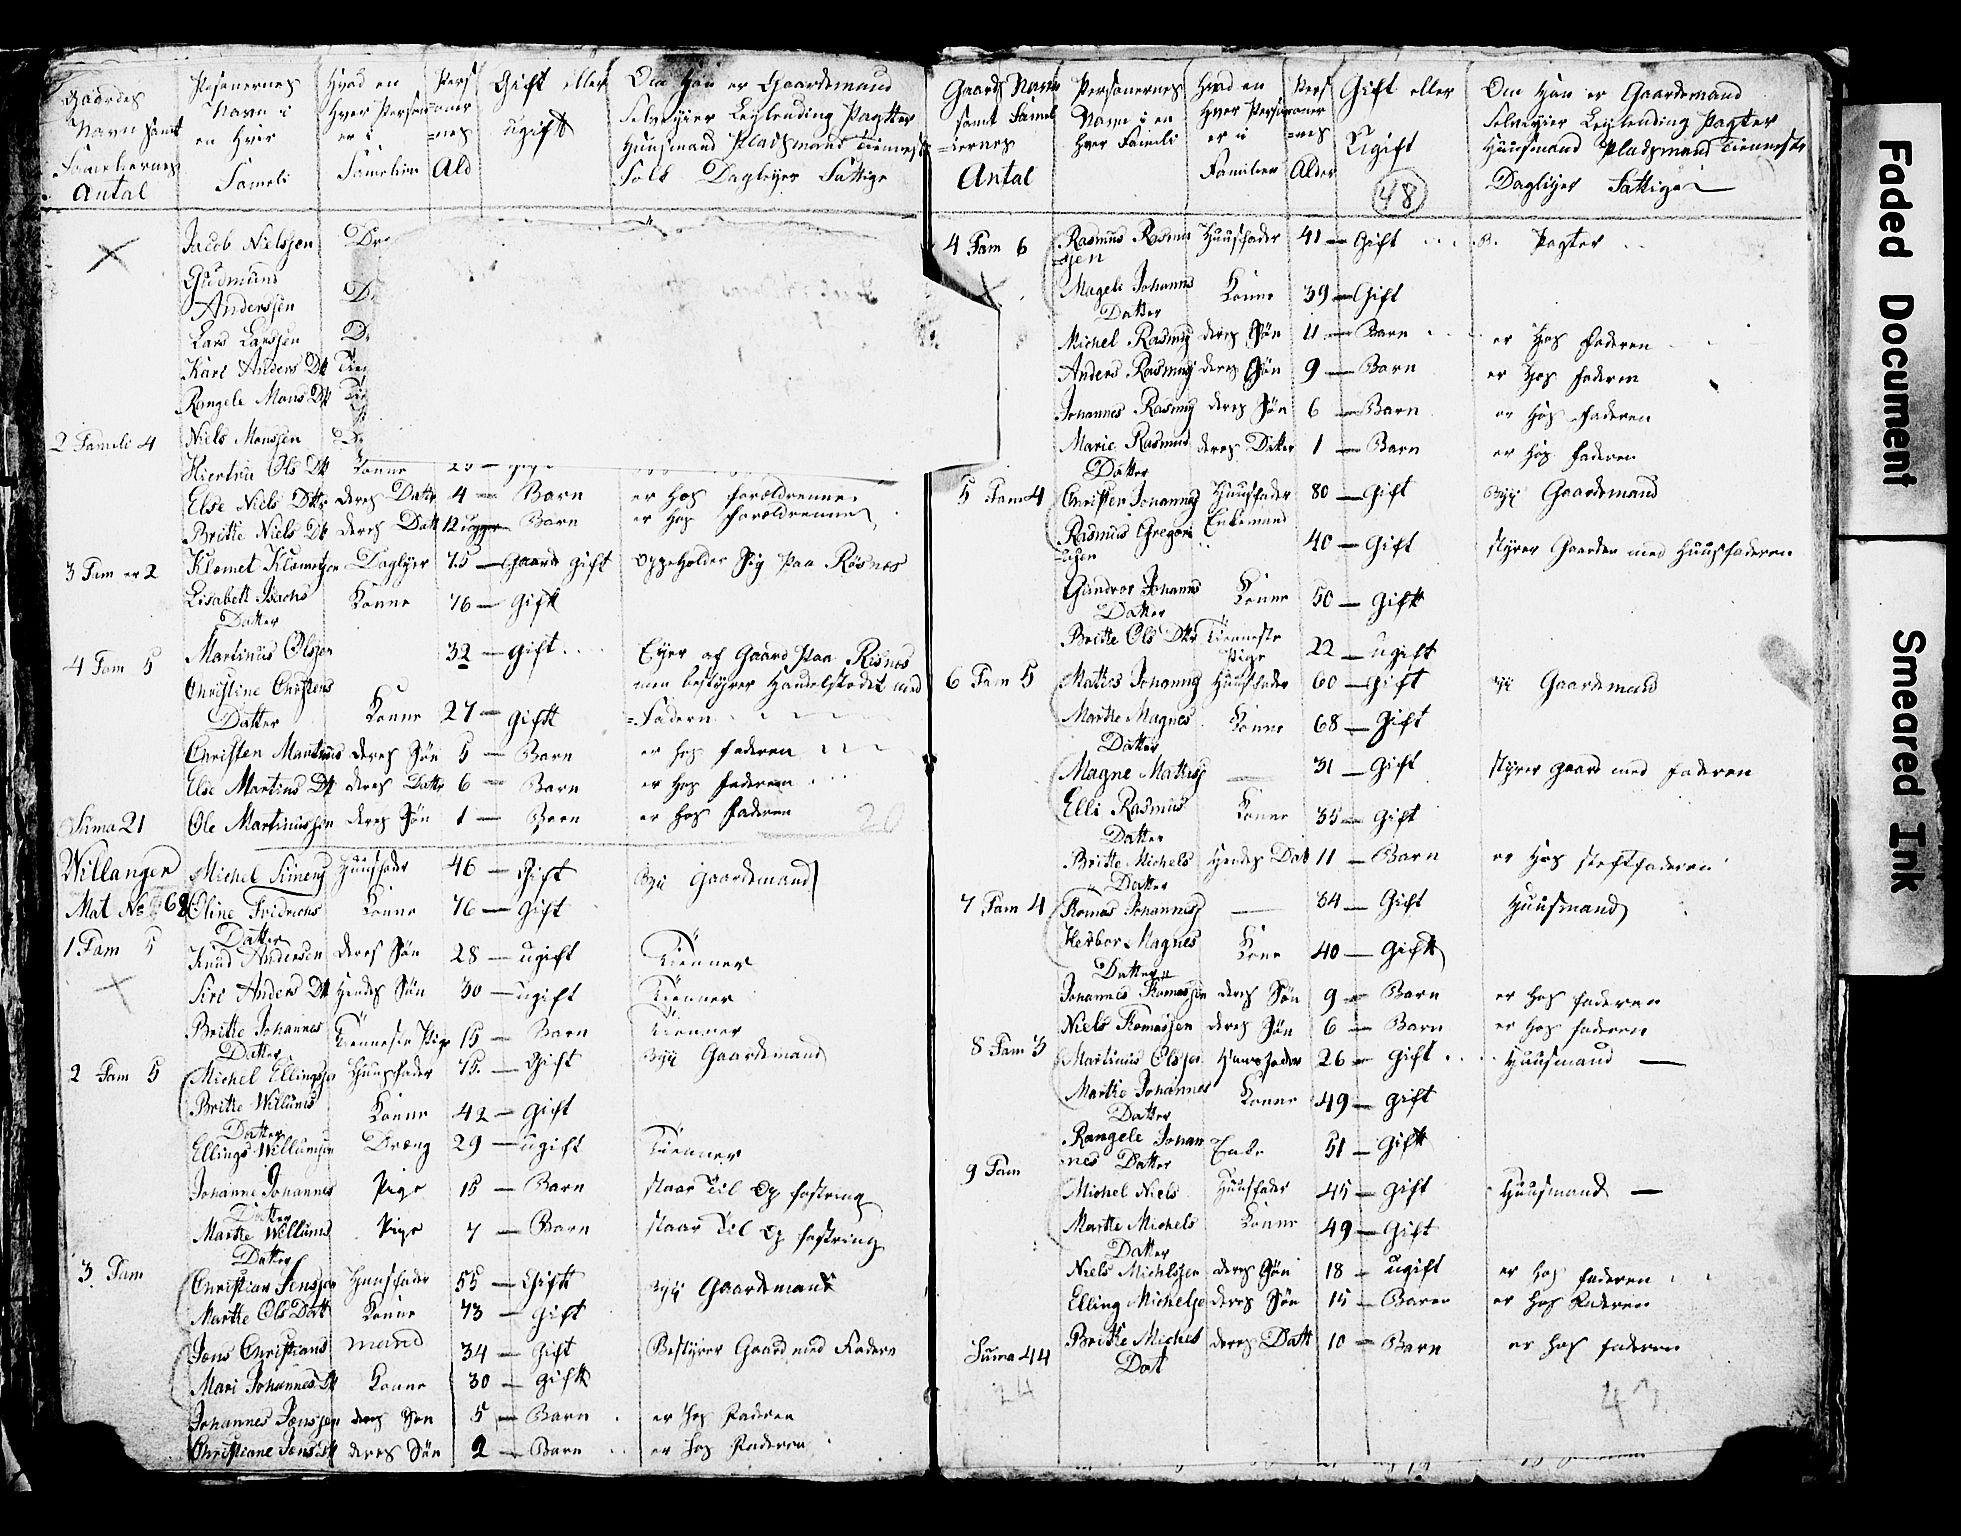 Gaardes Navn samt Familiernes Antal | Personernes Navn i en Hver Fameli | Hvad en Hver Person er i Familien | Personernes Ald | Gift eller ugift | Om Han er Gaardemand Selveyier Leylending Pagtter Huusmand Pladsmand Tienneste Folk Dagleyer Fattige
Jacob Nielssen Dr
Gudmund Anderssen D
Lars Larssen D
Kari Anders Dtt Tien
Rangele Mons Dtt Ti
2 Fameli 4 Niels Monssen
Ols Dtt Konne
Else Niels Dttr deres Dattr 4 — Barn er hos forældrenne
Britte Niels Dt deres Datt 12 uger Barn er hos forældrenne
3 Fam er 2 Klemet Klemetsen Dagleyer 75 — Gift oppeholder sig paa Risnæs
Lisabett Isachs Datter Konne 76 — Gift
4 Fam 5 Martinus Olssen 32 — Gift Eyer af Gaard paa Risnæs men bestyrer Handelstedet med Fadern
Christine Christens Datter Konne 27 — Gift
Christen Martinus deres Søn 5 — Barn er hos faderen
Else Martins Dt deres Dattr 6 — Barn er hos faderen
Suma 21 Ole Martinussen deres Søn 1 — Barn er hos faderen
20
Willanger Michel Simens Huusfader 46 — Gift Gaardemand
Mat No 68 Eline Fridrichs Datter Konne 76 — Gift
1 Fam 5 Knud Andersen deres Søn 28 — ugift Tienner
Siri Anders Dtt Hendes Søn 30 — ugift Tienner
Britte Johannes Datter Tienneste Pige 15 — Barn Tienner
2 Fam 5 Michel Ellingssen Huusfader 75 — Gift Gaardemand
Britte Willums Datter Konne 42 — Gift
Ellings Willumsen Dræng 29 — ugift Tienner
Johanne Johannes Datter Pige 15 — Barn staar til Op fostring
Marthe Willums Datter Pige 7 — Barn staar til Op fostring
3 Fam Christian Jenssen Huusfader 55 — Gift Gaardemand
Marthe Ols Datt Konne 73 — Gift
Jens Christians mand 34 — Gift Bestyrer Gaard med Fadern
Mari Johannes Dt Konne 30 — Gift
Johannes Jenssen deres Søn 5 — Barn er hos Faderen
Christiane Jens deres Søn 2 — Barn er hos Faderen
Gaards Navn samt Familiernes Antal | Personernes Navn i en Hver Famili | Hvad en Hver Person er i Familien | Personernes Alder | Gift eller Ugift | Om Han er Gaardemand Selveyier Leylending Pagter Huusmand Pladsmand Tienneste Dagliyer Fattige
48
4 Fam 6 Rasmus Rasmussen Huusfader 41 — Gift Pagter
Magele Johanns Datter Konne 39 — Gift
Michel Rasmus deres Søn 11 — Barn er hos faderen
Anders Rasmus deres Søn 9 — Barn er hos faderen
Johannes Rasmus deres Søn 6 — Barn er hos faderen
Marie Rasmus Datter deres Datter 1 — Barn er hos faderen
5 Fam 4 Christen Johannes Huusfader Enkemand 80 — Gift Gaardemand
Rasmus Gregoriussen 40 — Gift styrer Gaarden med Huusfaderen
Gundror Johanns Datter Konne 50 — Gift
Britte Ols Dttr Tienneste Pige 22 — ugift
6 Fam 5 Mattes Johannes Huusfader 60 — Gift Gaardemand
Marthe Magnes Datter Konne 68 — Gift
Magne Mattes — 31 — Gift styrer gaard med faderen
Elli Rasmus Datter Konne 35 — Gift
Britte Michels Datter Hendes Dat 11 — Barn er hos stiffaderen
7 Fam 4 Tomas Johannes — 34 — Gift Huusmand
Herbor Magnes Datter Kone 40 — Gift
Johannes Tomassen deres Søn 9 — Barn er hos faderen
Niels Tomassen deres Søn 6 — Barn er hos faderen
8 Fam 3 Martinus Olssen Huusfader 26 — Gift Huusmand —
Marthe Johannes Datter Konne 49 — Gift
Rangele Johannes Datter Enke 51 — Gift
9 Fam Michel Niels Huusfader 45 — Gift Huusmand —
Marthe Michels Datter Konne 49 — Gift
Niels Michelssen deres Søn 18 — ugift er hos faderen
Elling Michelse deres Søn 15 — Baren er hos Faderen
Suma 44 Britte Michel Dat deres Datt 10 — Barn er hos faderen
24
Faded Document
Smeared Ink